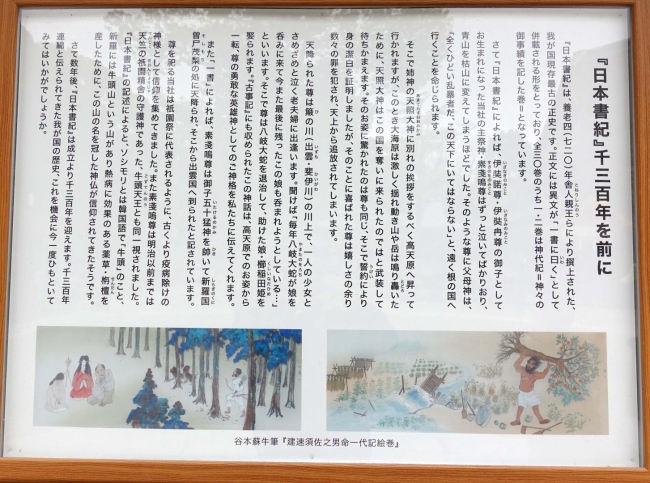 『日本書紀』千三百年を前に
『日本書紀』は、養老四(七二〇)年舎人親王らにより撰上された、
我が国現存最古の正史です。正文には異文が「一書に曰く」として
併載される形をとっており、全三〇巻のうち一・二巻は神代記=神々の
御事績を記した巻となっています。
さて『日本書紀』によれば、伊弉諾尊・伊弉冉尊の御子として
お生まれになった当社の主祭神・素戔嗚尊はずっと泣いてばかりおり、
青山を枯山に変えてしまうほどでした。そのような尊に父母神は、
「全くひどい乱暴者だ、この天下にいてはならない」と、遠く根の国へ
行くことを命じられます。
そこで姉神の天照大神に別れの挨拶をするべく高天原へ昇って
行かれますが、このとき大海原は激しく揺れ動き山や岳は鳴り轟いた
ために、天照大神はこの国を奪いに来られたのではと武装して
待ちかまえます。そのお姿に驚かれたのは尊も同じ、そこで誓約により
身の潔白を証明しましたが、そのことに喜ばれた尊は嬉しさの余り
数々の罪を犯され、天上から追放されてしまいます。
天降られた尊は簸の川(出雲・斐伊川)の川上で、一人の少女と
さめざめと泣く老夫婦に出逢います。聞けば「毎年八岐大蛇が娘を
呑みに来て今また最後に残ったこの娘も呑まれようとしている…」
といいます。そこで尊は八岐大蛇を退治して、助けた娘・櫛稲田姫を
娶られます。『古事記』にも収められたこの神話は、高天原でのお姿から
一転、尊の勇敢な英雄神としてのご神格を私たちに伝えてくれます。
また「一書」によれば、素戔嗚尊は御子五十猛神を帥いて新羅国
曽尸茂梨の処に天降られ、そこから出雲国へ到られたと記されています。
尊を祀る当社は祇園祭に代表されるように、古くより疫病除けの
神様として信仰を集めてきました。また素戔嗚尊は明治以前までは
天竺の祇園精舎の守護神であった、牛頭天王とも同一視されました。
『日本書紀』の記述によると、ソシモリとは韓国語で「牛頭」のこと、
新羅には牛頭山という山があり熱病に効果のある薬草・栴檀を
産したために、この山の名を冠した神仏が信仰されてきたそうです。
さて数年後、『日本書紀』は成立より千三百年を迎えます。千三百年
連綿と伝えられてきた我が国の歴史、これを機会に今一度ひもといて
みてはいかがでしょうか。
谷本蘇牛筆『建速須佐之男命一代記絵巻』